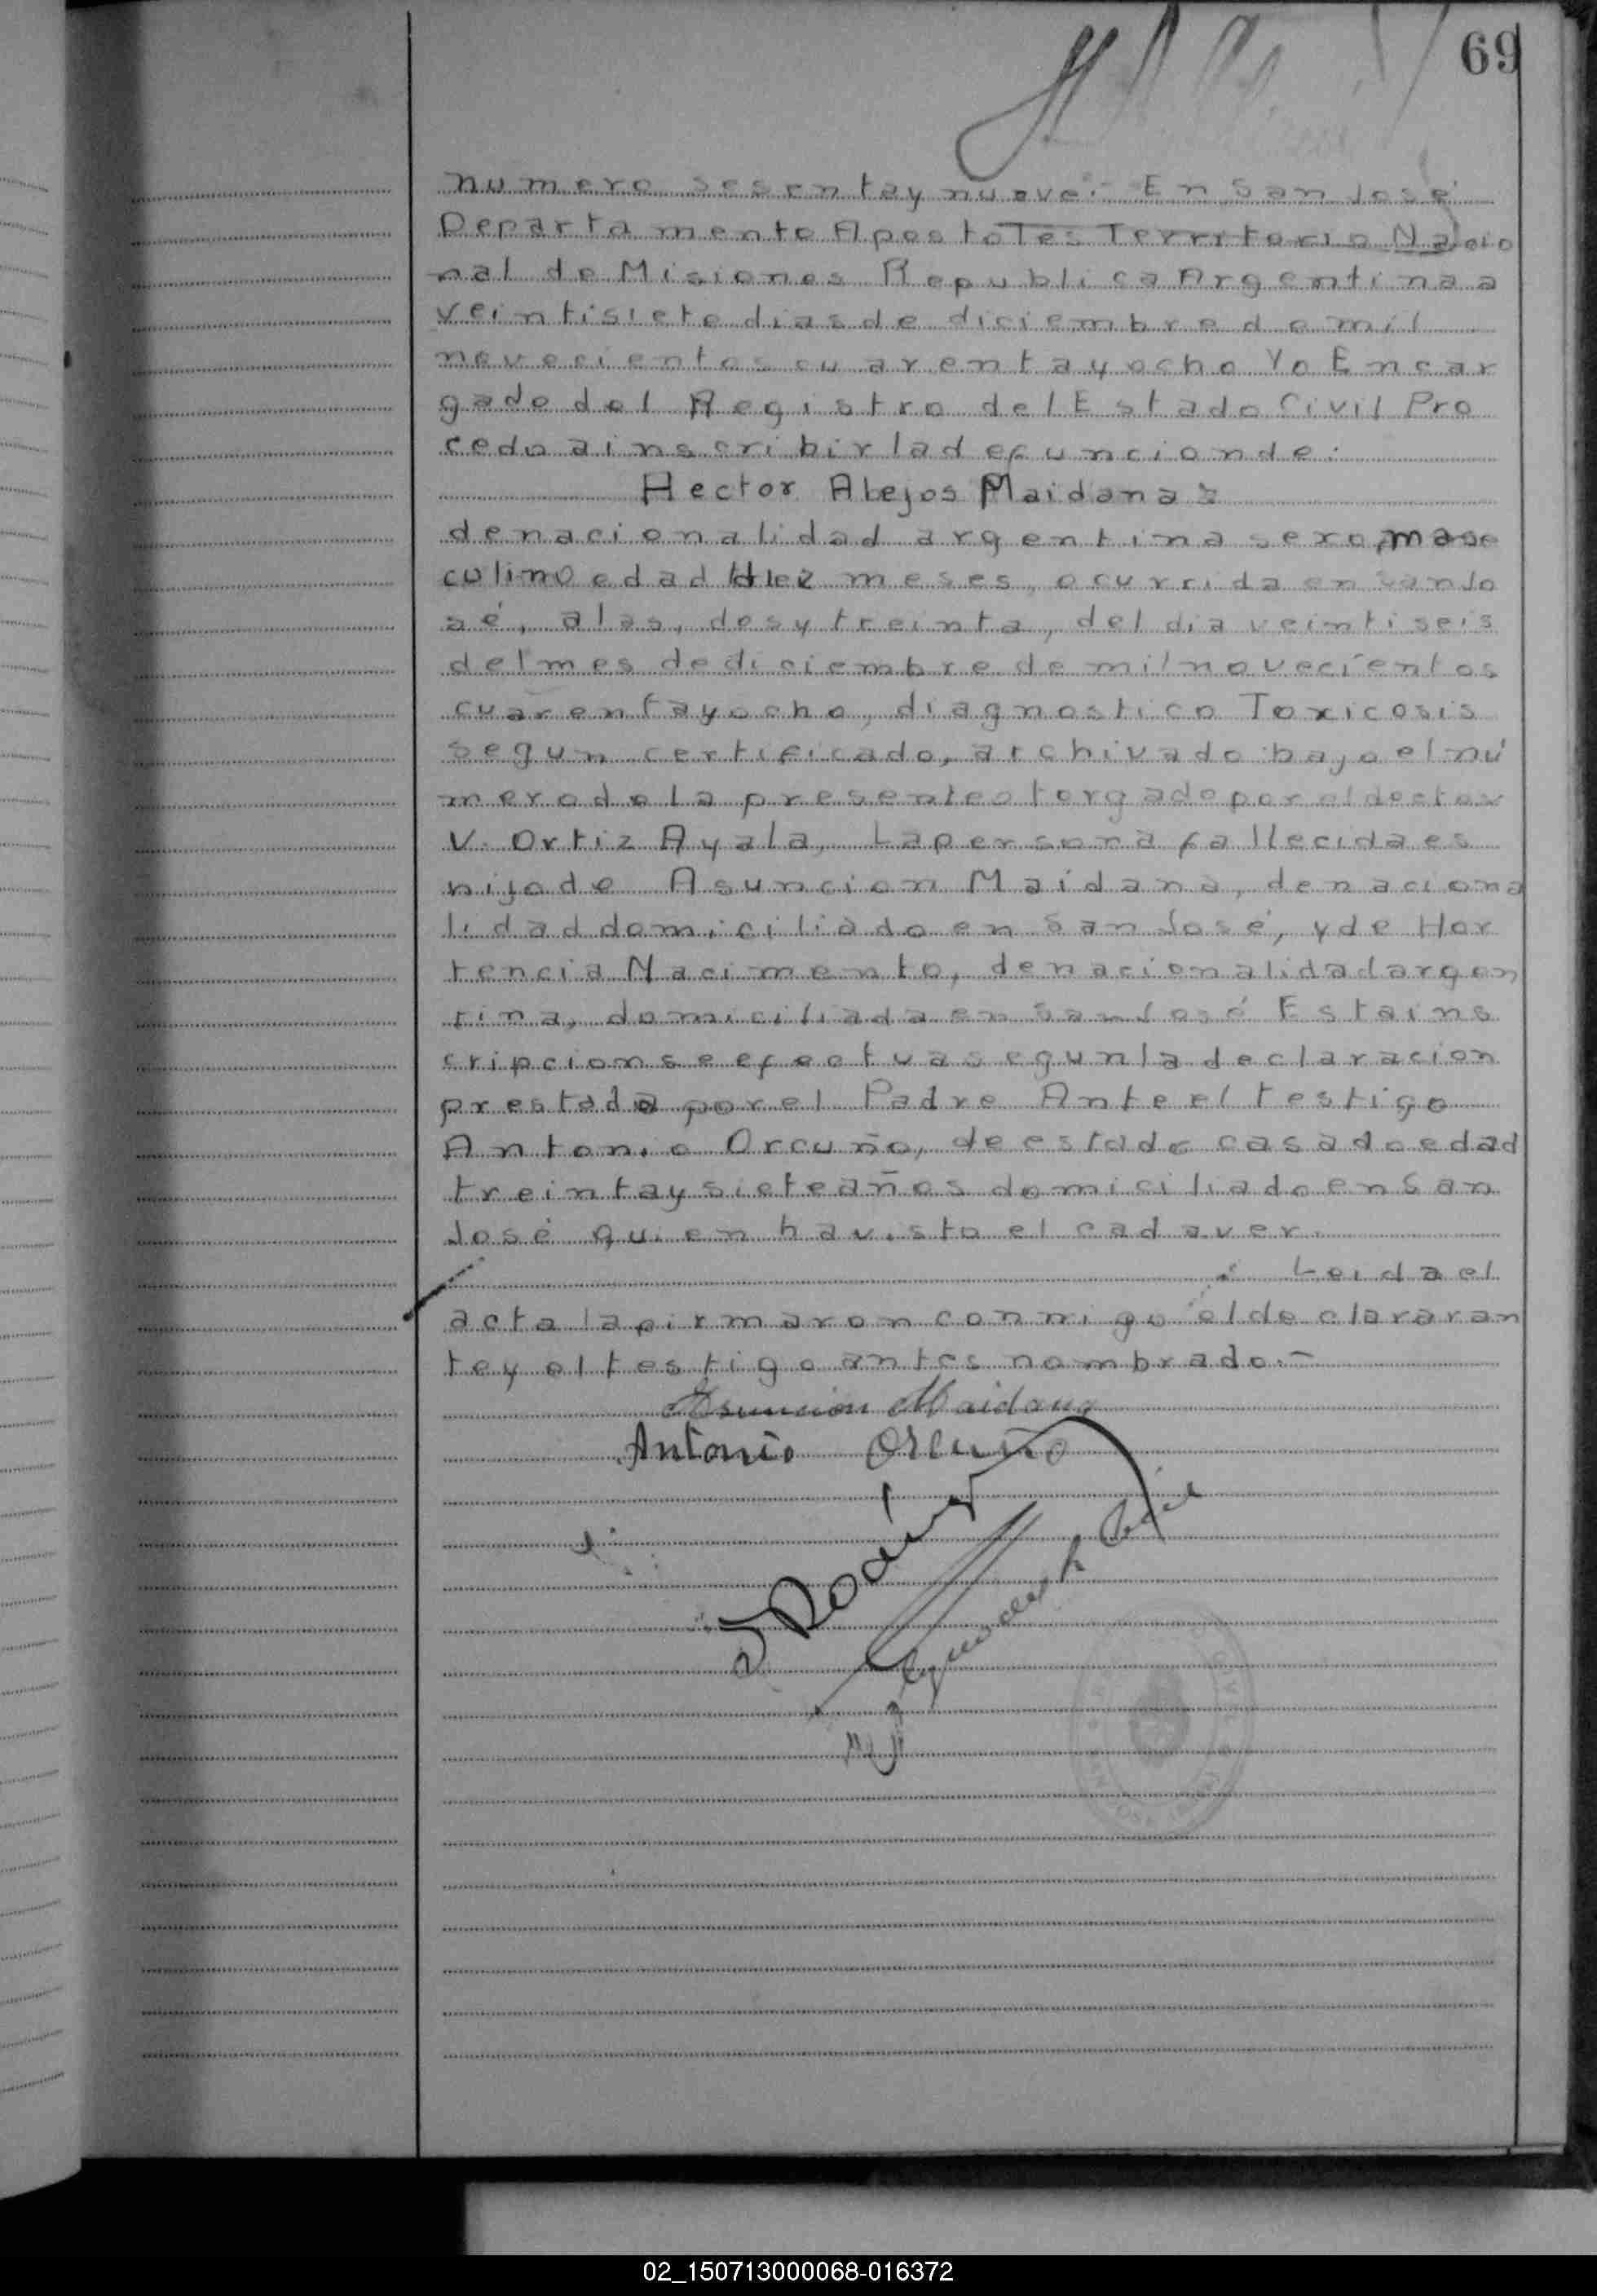 69
numero sesentay nueve:- En San José
Departamento Apostoles Territorio Nacio
nal de Misiones Republica Argentina a
veintisiete dias de diciembre de mil
novecientos cuarentayocho Yo Encar
gado del Registro del Estado Civil Pro
cedo ainscribir la defuncionde:
Hector Alejos Maidana
denacionalidad argentina sexo, mas
culino edad diez meses, ocurrida en San Jo
sé, alas, dosytreinta, del dia veintiseis
delmes de diciembre de milnovecientos
cuarentayocho, diagnostico Toxicosis
segun certificado, archivado bajo el nú
mero de la presente otorgado por el doctor
V. Ortiz Ayala, La persona fallecida es
hijode Asuncion Maidana, denaciona
lidad domiciliado en San José, yde Hor
tencia Nacimento, denacionalidad argen
tina, domiciliada en San José Esta ins
cripcion se efectua segun la declaracion
prestada por el Padre Ante el testigo
Antonio Orcuño, de estado casado edad
treintaysieteaños domiciliado en San
José quien havisto el cadaver.
Leida el
acta la firmaron conmigo el declararan
tey el testigo antes nombrado.-
Asuncion Maidana
Antonio Orcuño
02_150713000068-016372